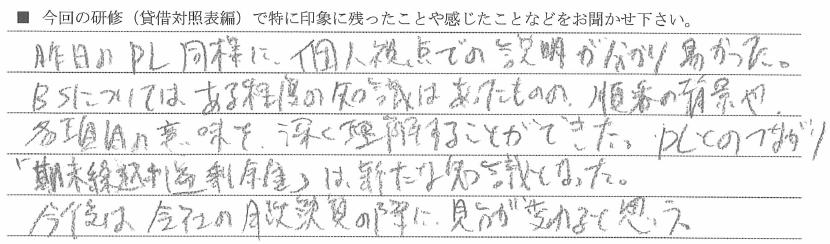 ■ 今回の研修（貸借対照表編）で特に印象に残ったことや感じたことなどをお聞かせ下さい。
昨日のPL同様に、個人視点での説明が分かり易かった。
BSについては、ある程度の知識はあったものの、順番の背景や
各項目の意味を、深く理解することができた。PLとのつながり
「期末繰越利益剰余金」は、新たな知識となった。
今後は、会社の月次決算の際に、見方が変わると思う。